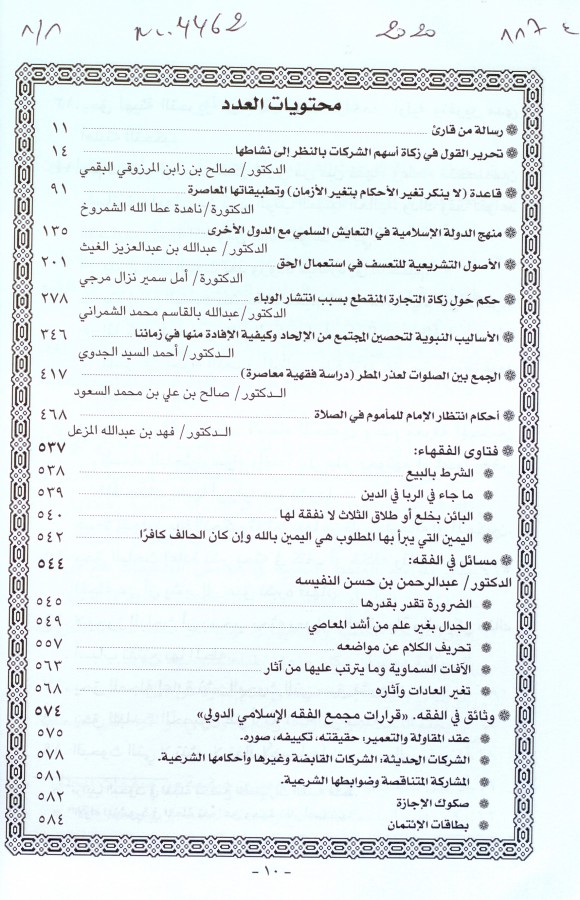 ١/١ No: 4462 2020 ع ١١٧
محتويات العدد
❁ رسالة من قارئ ١١
❁ تحرير القول في زكاة أسهم الشركات بالنظر إلى نشاطها ١٤
الدكتور/ صالح بن زابن المرزوقي البقمي
❁ قاعدة (لا ينكر تغير الأحكام بتغير الأزمان) وتطبيقاتها المعاصرة ٩١
الدكتورة/ناهدة عطا الله الشمروخ
❁ منهج الدولة الإسلامية في التعايش السلمي مع الدول الأخرى ١٣٥
الدكتور/ عبدالله بن عبدالعزيز الغيث
❁ الأصول التشريعية للتعسف في استعمال الحق ٢٠١
الدكتورة/ أمل سمير نزال مرجي
❁ حكم حَولِ زكاة التجارة المنقطع بسبب انتشار الوباء ٢٧٨
الدكتور/عبدالله بالقاسم محمد الشمراني
❁ الأساليب النبوية لتحصين المجتمع من الإلحاد وكيفية الإفادة منها في زماننا ٣٤٦
الـدكتور/ أحمد السيد الجدوي
❁ الجمع بين الصلوات لعذر المطر (دراسة فقهية معاصرة) ٤١٧
الـدكتور/ صالح بن علي بن محمد السعود
❁ أحكام انتظار الإمام للمأموم في الصلاة ٤٦٨
الـدكتور/ فهد بن عبدالله المزعل
❁ فتاوى الفقهاء: ٥٣٧
❁ الشرط بالبيع ٥٣٨
❁ ما جاء في الربا في الدين ٥٣٩
❁ البائن بخلع أو طلاق الثلاث لا نفقة لها ٥٤٠
❁ اليمين التي يبرأ بها المطلوب هي اليمين بالله وإن كان الحالف كافرًا ٥٤٢
❁ مسائل في الفقه: ٥٤٤
الدكتور/ عبدالرحمن بن حسن النفيسه
❁ الضرورة تقدر بقدرها ٥٤٥
❁ الجدال بغير علم من أشد المعاصي ٥٤٩
❁ تحريف الكلام عن مواضعه ٥٥٧
❁ الآفات السماوية وما يترتب عليها من آثار ٥٦٣
❁ تغير العادات وآثاره ٥٦٨
❁ وثائق في الفقه. «قرارات مجمع الفقه الإسلامي الدولي» ٥٧٤
❁ عقد المقاولة والتعمير: حقيقته، تكييفه، صوره. ٥٧٥
❁ الشركات الحديثة: الشركات القابضة وغيرها وأحكامها الشرعية. ٥٧٨
❁ المشاركة المتناقصة وضوابطها الشرعية. ٥٨١
❁ صكوك الإجازة ٥٨٢
❁ بطاقات الإئتمان ٥٨٤
- ١٠ -